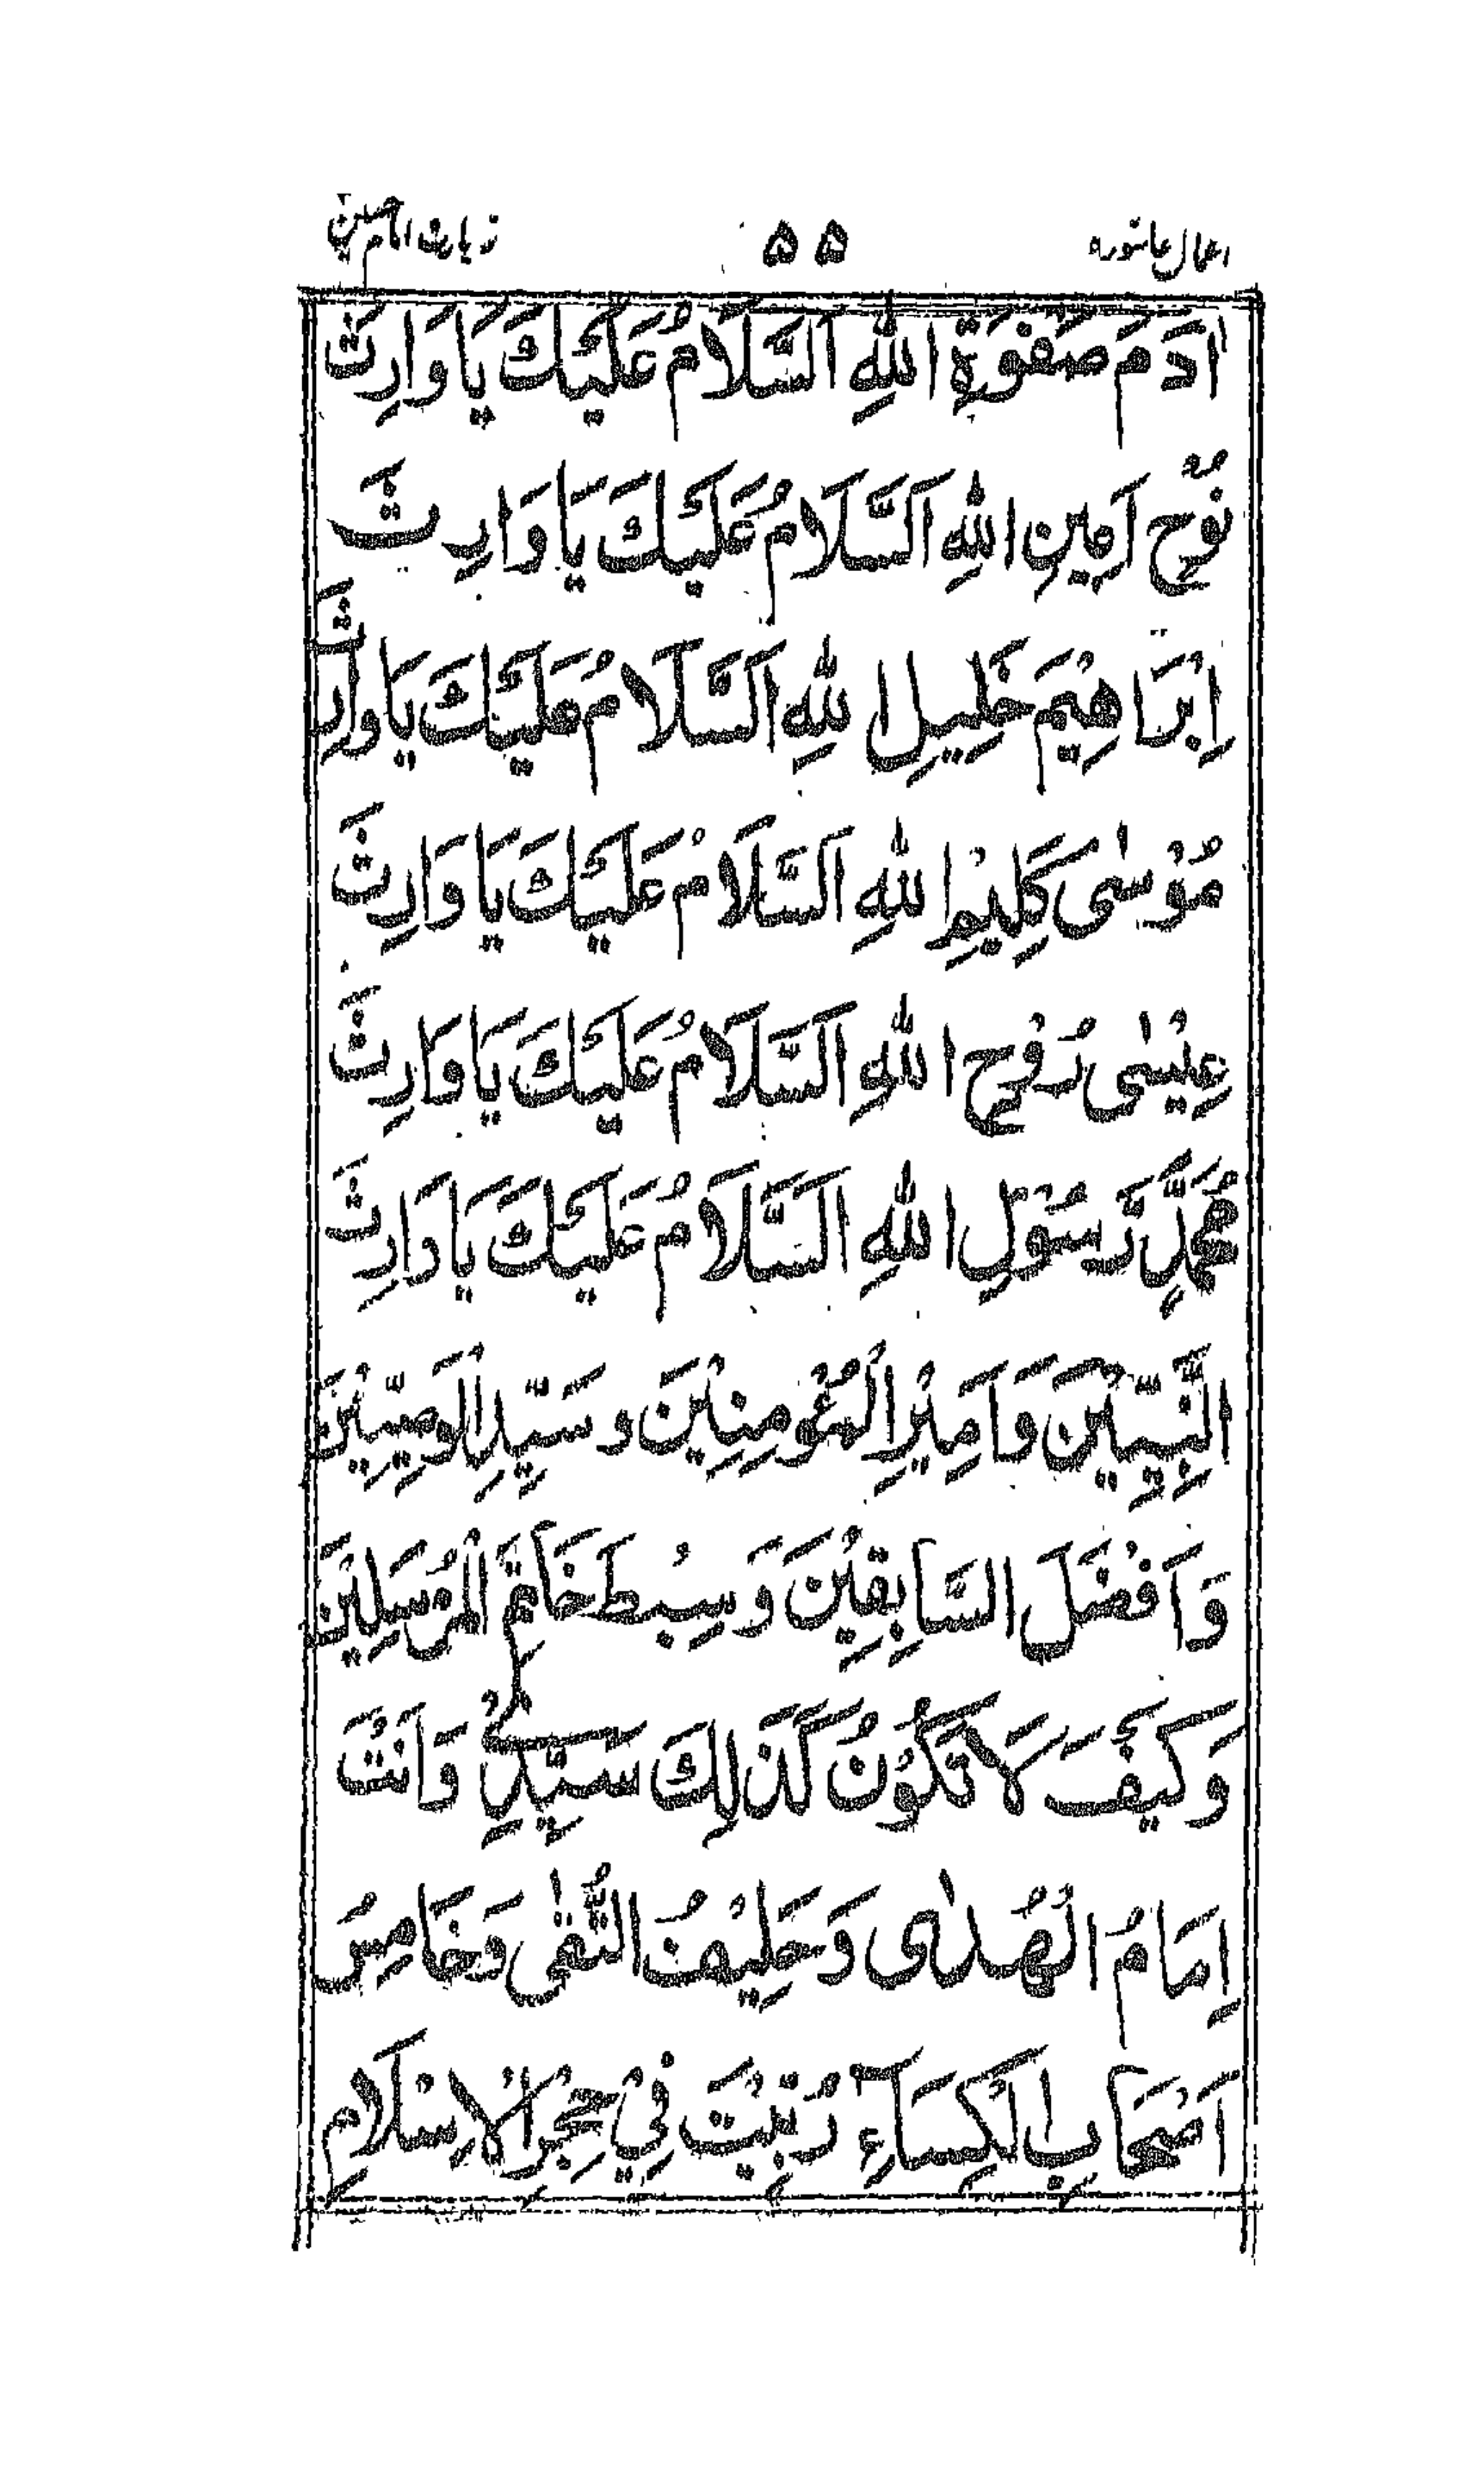 اعمال عاشوره ۵۵ زیارت امام حسینؑ
اٰدَمَ صَفْوَةِ اللهِ اَلسَّلَامُ عَلَيْكَ يَا وَارِثَ
نُوْحٍ اَمِينِ اللهِ اَلسَّلَامُ عَلَيْكَ يَا وَارِثَ
اِبْرَاهِيْمَ خَلِيلِ اللهِ اَلسَّلَامُ عَلَيْكَ يَا وَارِثَ
مُوْسٰى كَلِيْمِ اللهِ اَلسَّلَامُ عَلَيْكَ يَا وَارِثَ
عِيْسٰى رُوْحِ اللهِ اَلسَّلَامُ عَلَيْكَ يَا وَارِثَ
مُحَمَّدٍ رَّسُوْلِ اللهِ اَلسَّلَامُ عَلَيْكَ يَا وَارِثَ
النَّبِيِّيْنَ وَاَمِيْرِ الْمُؤمِنِيْنَ وسَيِّدِ الْوَصِيِّيْنَ
وَاَفْضَلَ السَّابِقِيْنَ وَسِبْطَ خَاتَمِ الْمُرْسَلِيْنَ
وَكَيْفَ لَا تَكُوْنُ كَذَلِكَ سَيِّدِيْ وَاَنْتَ
اِمَامُ الْهُدٰى وَحَلِيْفُ التُّقٰى وَخَامِسُ
اَصْحَابِ الْكِسَآءِ رُبِّيْتَ فِيْ حِجْرِ الْاِسْلَامِ